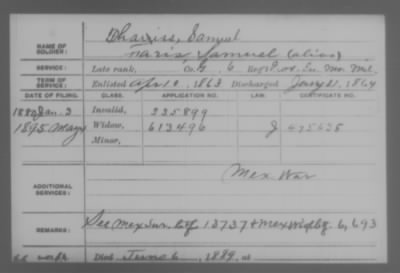 Pharris, Samuel
NAME OF SOLDIER: Faris Samuel (alias)
SERVICE: Late rank, Co. G, 6 Reg't Prov. En. Mo. Mil.
TERM OF SERVICE: Enlisted Apr 1, 1863 Discharged Jany 21, 1864
DATE OF FILING. CLASS. APPLICATION NO. LAW. CERTIFICATE NO.
Jan. 3 Invalid, 235899
1895 May Widow, 613496 J 475638
Minor,
ADDITIONAL SERVICES: Mex War
REMARKS: See Mex Sur. Ctf. 13737 & Mex Wid 6,693
Died June 6, 1889, at